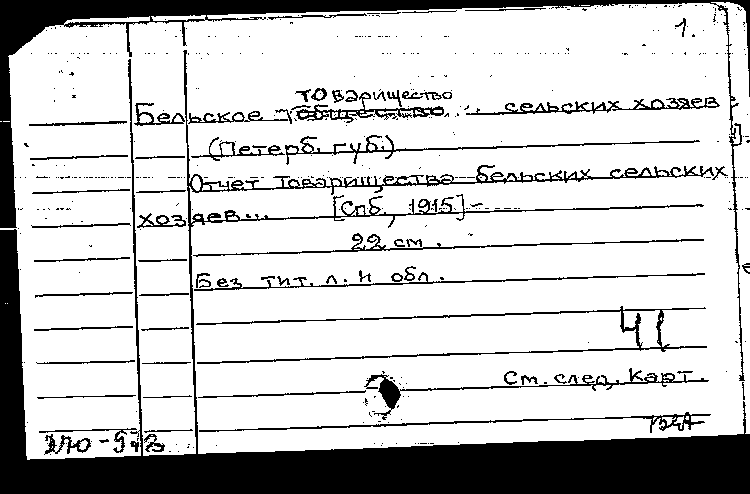 1.
товарищество
Бельское общество сельских хозяев
(Петерб. губ.)
Отчет Товарищества бельских сельских
хозяев... [Спб., 1915] -
22 см.
Без тит. л. и обл.
41
См. след. карт.